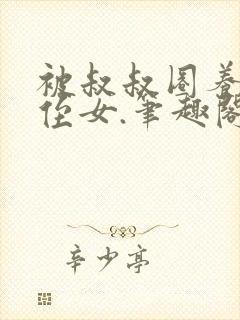 被叔叔圈养
侄女.笔趣阁
辛少亭